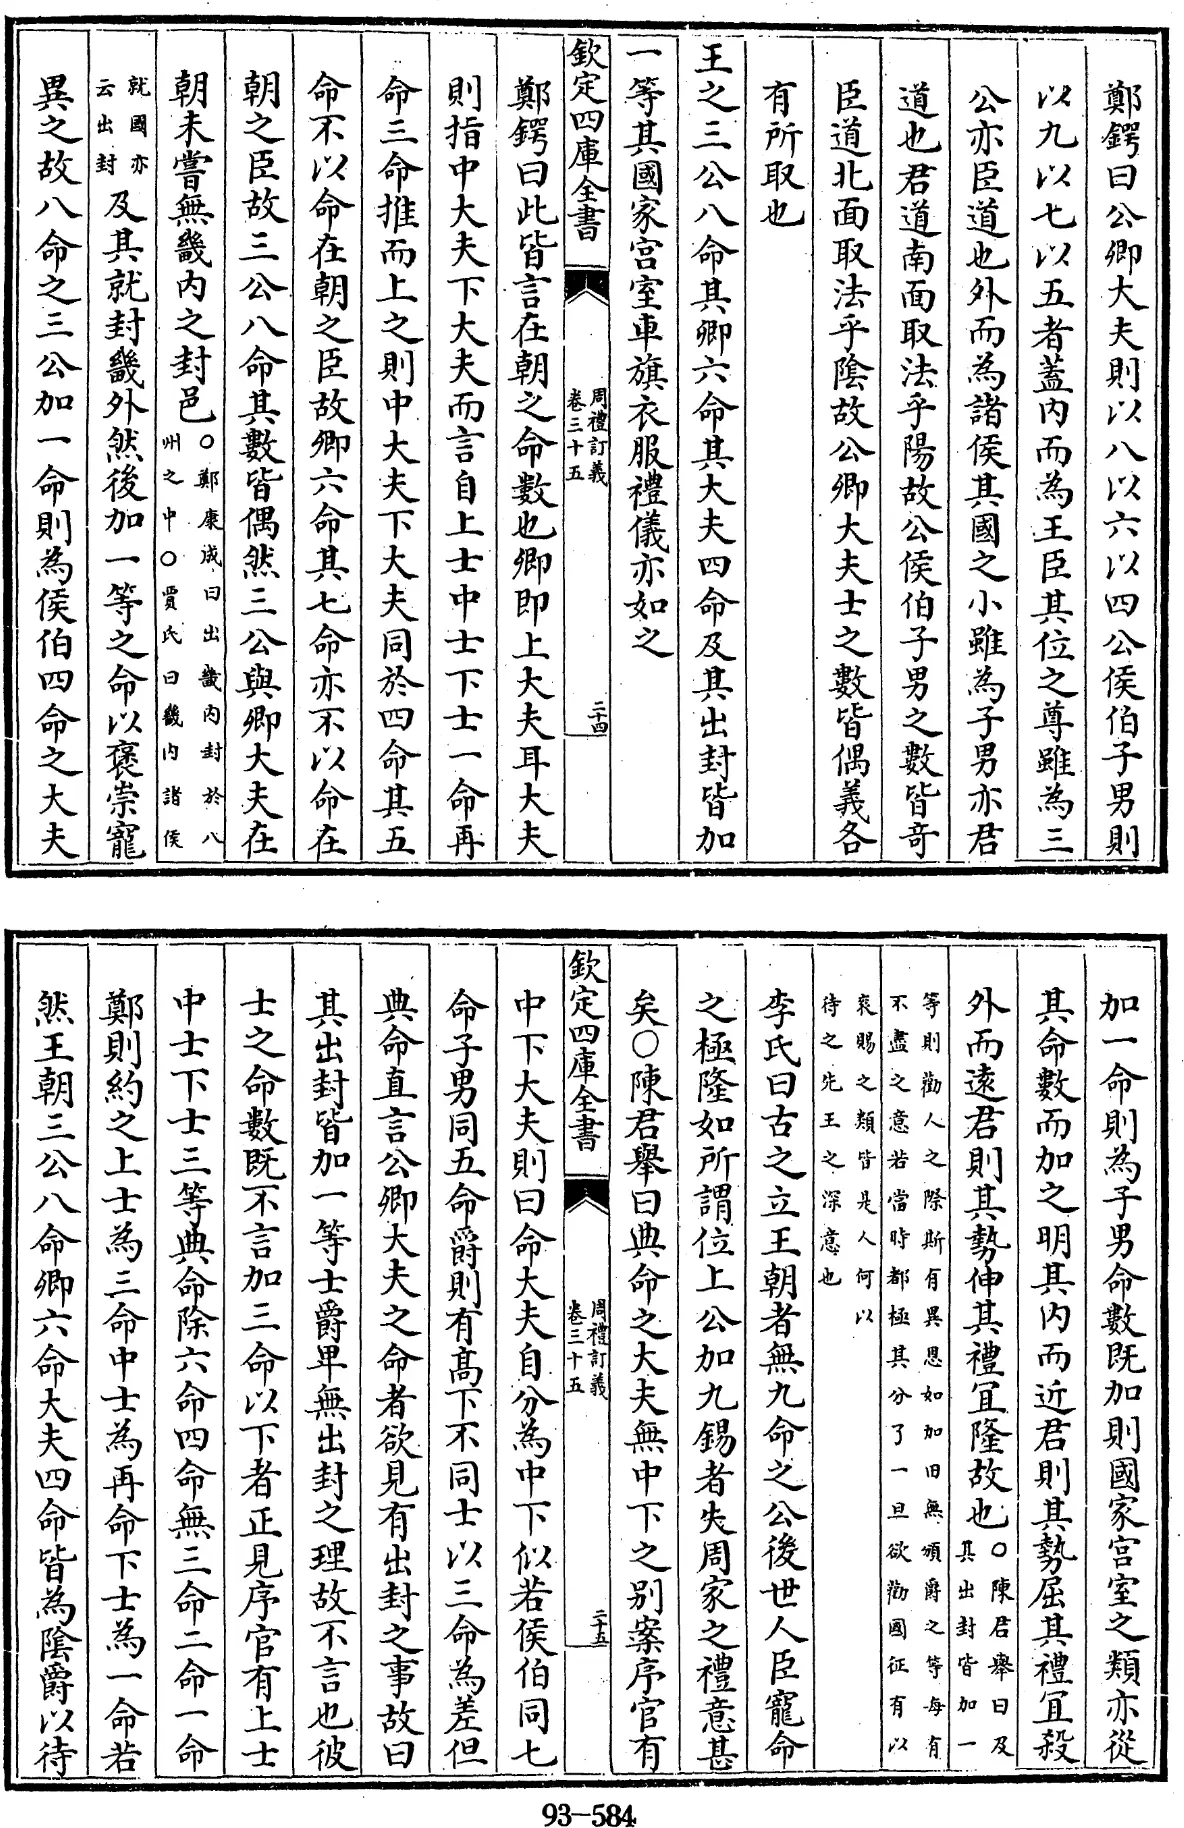 鄭鍔曰公卿大夫則以八以六以四公侯伯子男則
以九以七以五者蓋内而為王臣其位之尊雖為三
公亦臣道也外而為諸侯其國之小雖為子男亦君
道也君道南面取法乎陽故公侯伯子男之數皆竒
臣道北面取法乎陰故公卿大夫士之數皆偶義各
有所取也
王之三公八命其卿六命其大夫四命及其出封皆加
一等其國家宮室車旗衣服禮儀亦如之
欽定四庫全書
周禮訂義
卷三十五
二十四
鄭鍔曰此皆言在朝之命數也卿即上大夫耳大夫
則指中大夫下大夫而言自上士中士下士一命再
命三命推而上之則中大夫下大夫同於四命其五
命不以命在朝之臣故卿六命其七命亦不以命在
朝之臣故三公八命其數皆偶然三公與卿大夫在
朝未嘗無畿内之封邑
○鄭康成曰出畿内封於八
州之中○賈氏曰畿内諸侯
就國亦
云出封
及其就封畿外然後加一等之命以褒崇寵
異之故八命之三公加一命則為侯伯四命之大夫
加一命則為子男命數既加則國家宮室之類亦從
其命數而加之明其内而近君則其勢屈其禮宜殺
外而遠君則其勢伸其禮宜隆故也
○陳君舉曰及
其出封皆加一
等則勸人之際斯有異恩如加田無頒爵之等每有
不盡之意若當時都極其分了一旦欲勸國征有以
褒賜之類皆是人何以
待之先王之深意也
李氏曰古之立王朝者無九命之公後世人臣寵命
之極隆如所謂位上公加九錫者失周家之禮意甚
矣○陳君舉曰典命之大夫無中下之别案序官有
欽定四庫全書
周禮訂義
卷三十五
二十五
中下大夫則曰命大夫自分為中下似若侯伯同七
命子男同五命爵則有髙下不同士以三命為差但
典命直言公卿大夫之命者欲見有出封之事故曰
其出封皆加一等士爵卑無出封之理故不言也彼
士之命數既不言加三命以下者正見序官有上士
中士下士三等典命除六命四命無三命二命一命
鄭則約之上士為三命中士為再命下士為一命若
然王朝三公八命卿六命大夫四命皆為陰爵以待
93-584